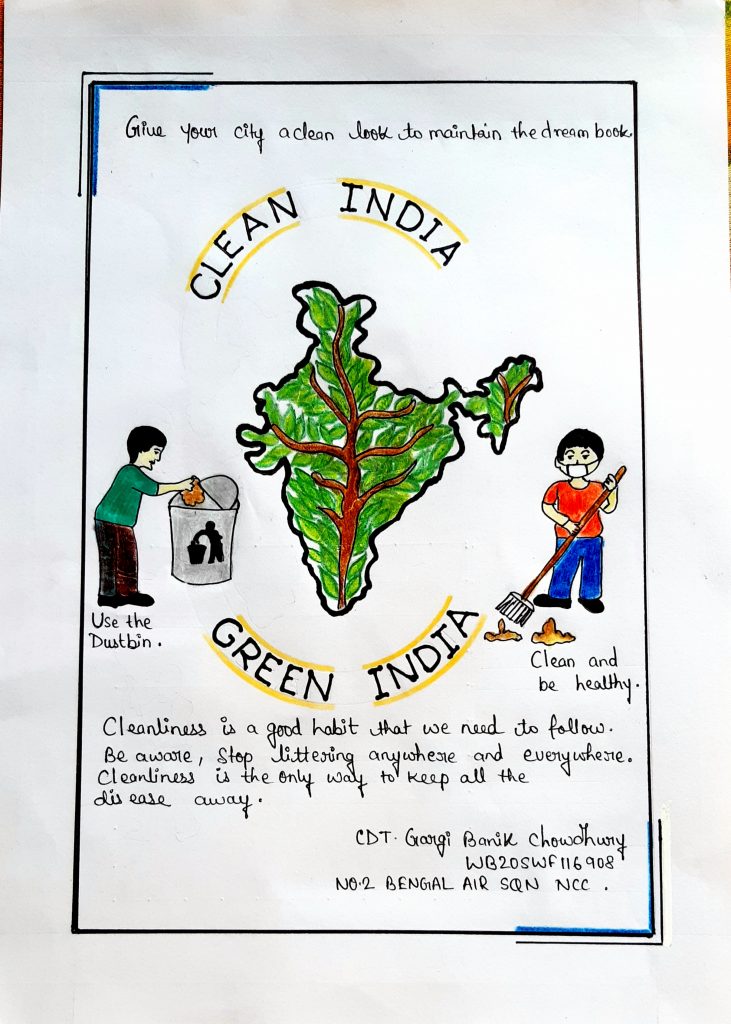 Give your city a clean look to maintain the dream book.
CLEAN INDIA
Use the
Dustbin.
GREEN INDIA
Clean and
be healthy.
Cleanliness is a good habit that we need to follow.
Be aware, Stop littering anywhere and everywhere.
Cleanliness is the only way to keep all the
disease away.
CDT. Gargi Banik Chowdhury
WB20SWF116908
NO.2 BENGAL AIR SQN NCC.